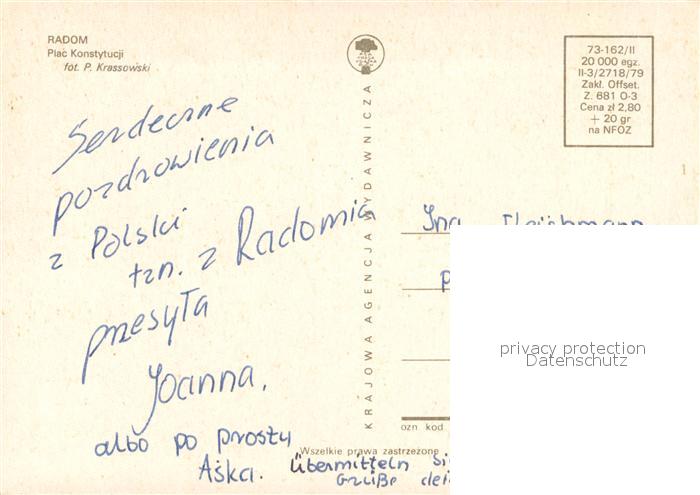 RADOM
Plac Konstytucji
fot. P. Krassowski
73-162/II
20 000 egz.
II-3/2718/79
Zakł. Offset.
Z. 681 O-3
Cena zł 2,80
+ 20 gr
na NFOZ
KRAJOWA AGENCJA WYDAWNICZA
Serdeczne
pozdrowienia
z Polski
tzn. z Radomia
przesyła
Joanna.
albo po prostu
Aśka.
privacy protection
Datenschutz
ozn kod
Wszelkie prawa zastrzeżone
Übermitteln
Grüße